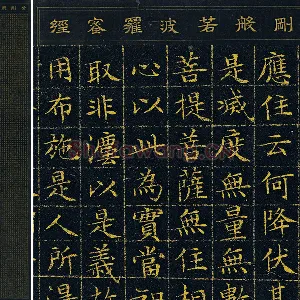 剛般若波羅蜜經
應住云何降伏其
是滅度無量無數
菩提菩薩無住相
心以此為實當
取非灋以是義故
用布施是人所得